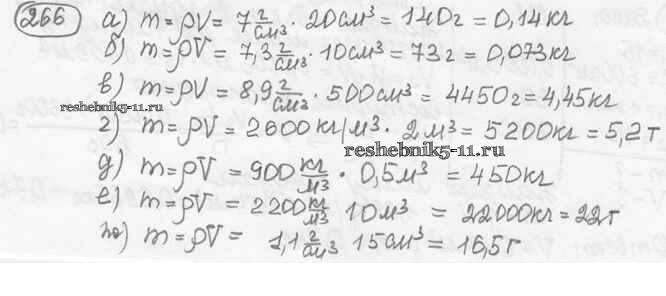 266 а) m = ρV = 7 г/см³ · 20 см³ = 140 г = 0,14 кг
б) m = ρV = 7,3 г/см³ · 10 см³ = 73 г = 0,073 кг
в) m = ρV = 8,9 г/см³ · 500 см³ = 4450 г = 4,45 кг
reshebnik5-11.ru
г) m = ρV = 2600 кг/м³ · 2 м³ = 5200 кг = 5,2 т
reshebnik5-11.ru
д) m = ρV = 900 кг/м³ · 0,5 м³ = 450 кг
е) m = ρV = 2200 кг/м³ 10 м³ = 22000 кг = 22 т
ж) m = ρV = 1,1 г/см³ 15 см³ = 16,5 г